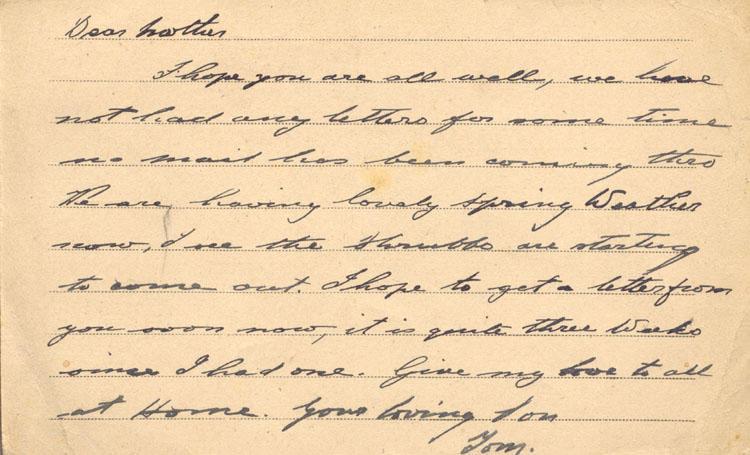 Dear Mother
I hope you are all well, we have
not had any letters for some time
no mail has been coming thro
We are, having lovely Spring Weather
now, I see the Shrubbs are starting
to come out. I hope to get a letter from
you soon now, it is quite three Weeks
since I had one. Give my love to all
at Home. Your loving Son
Tom.